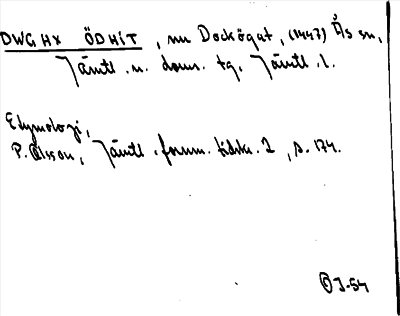 DWGHX ÖDHIT, nu Dockögat, (1447) Ås sn,
Jämtl. n. doms. tg. Jämtl. l.
Etymologi,
P. Olsson, Jämtl. fornm. tidskr. 2, s. 174.
OJ-54